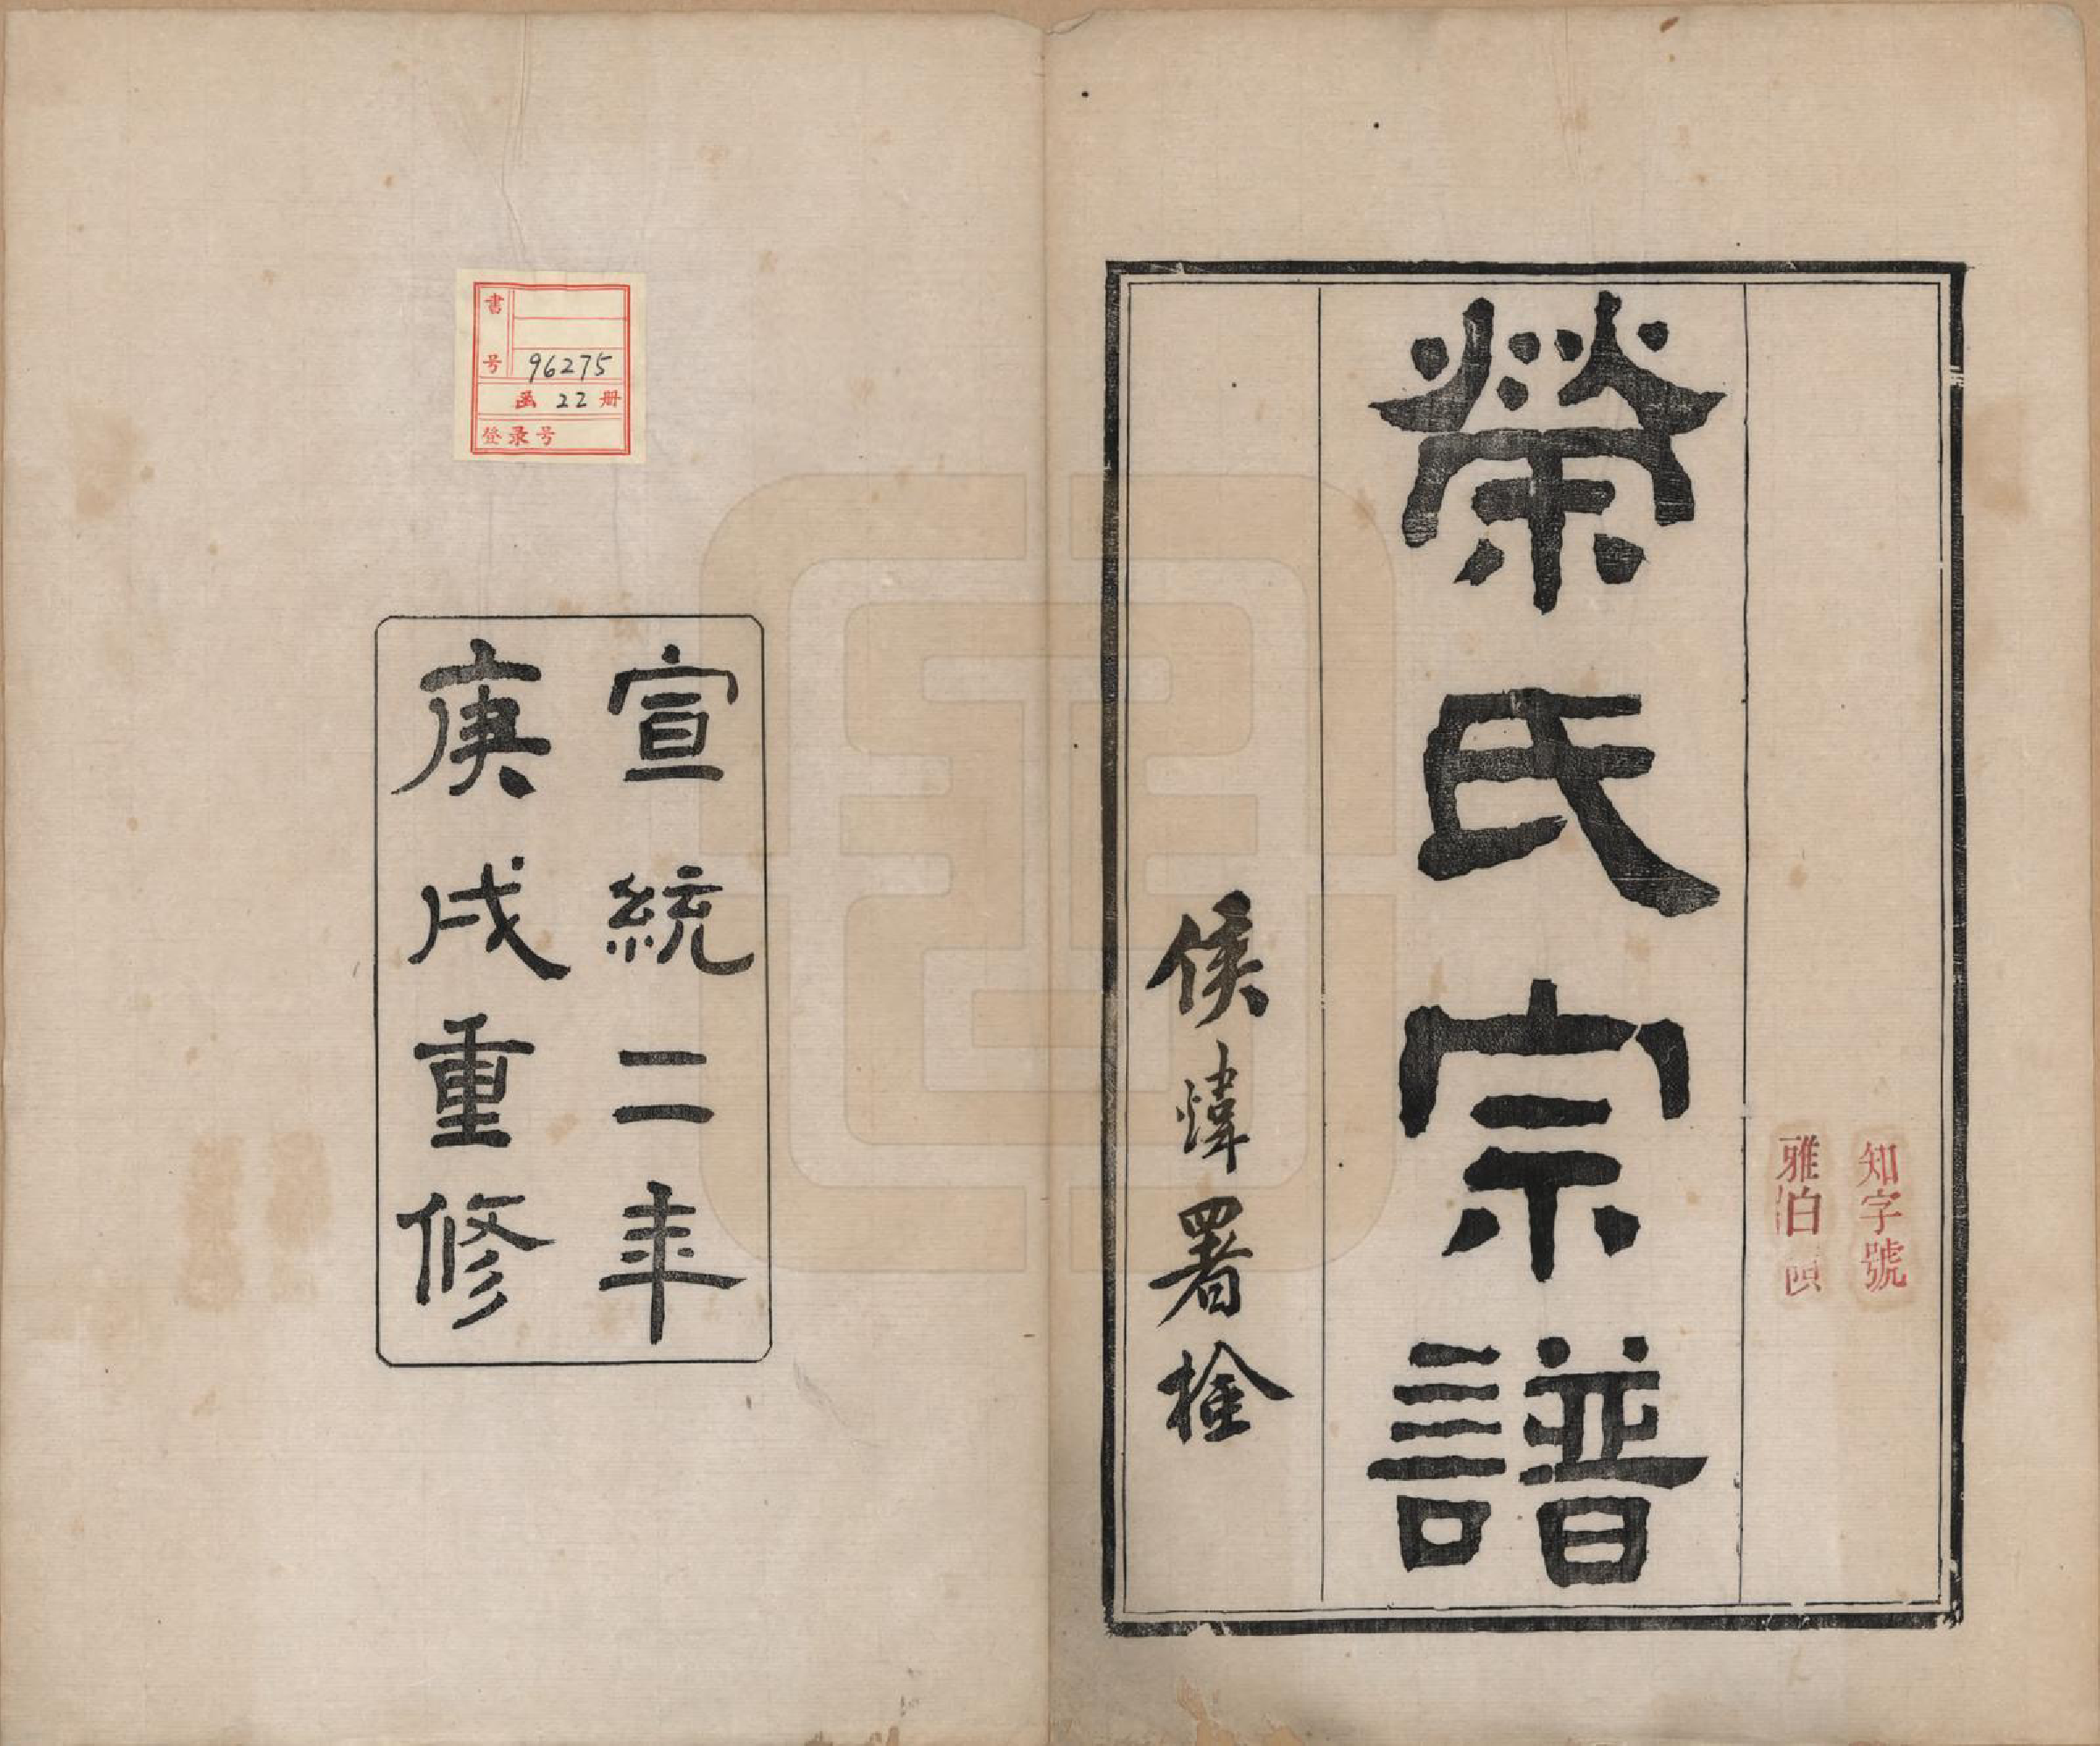 知字號
雅伯
榮氏宗譜
侯㷉署检
宣統二年
庚戌重修
書号 96275
函 22 册
登录号